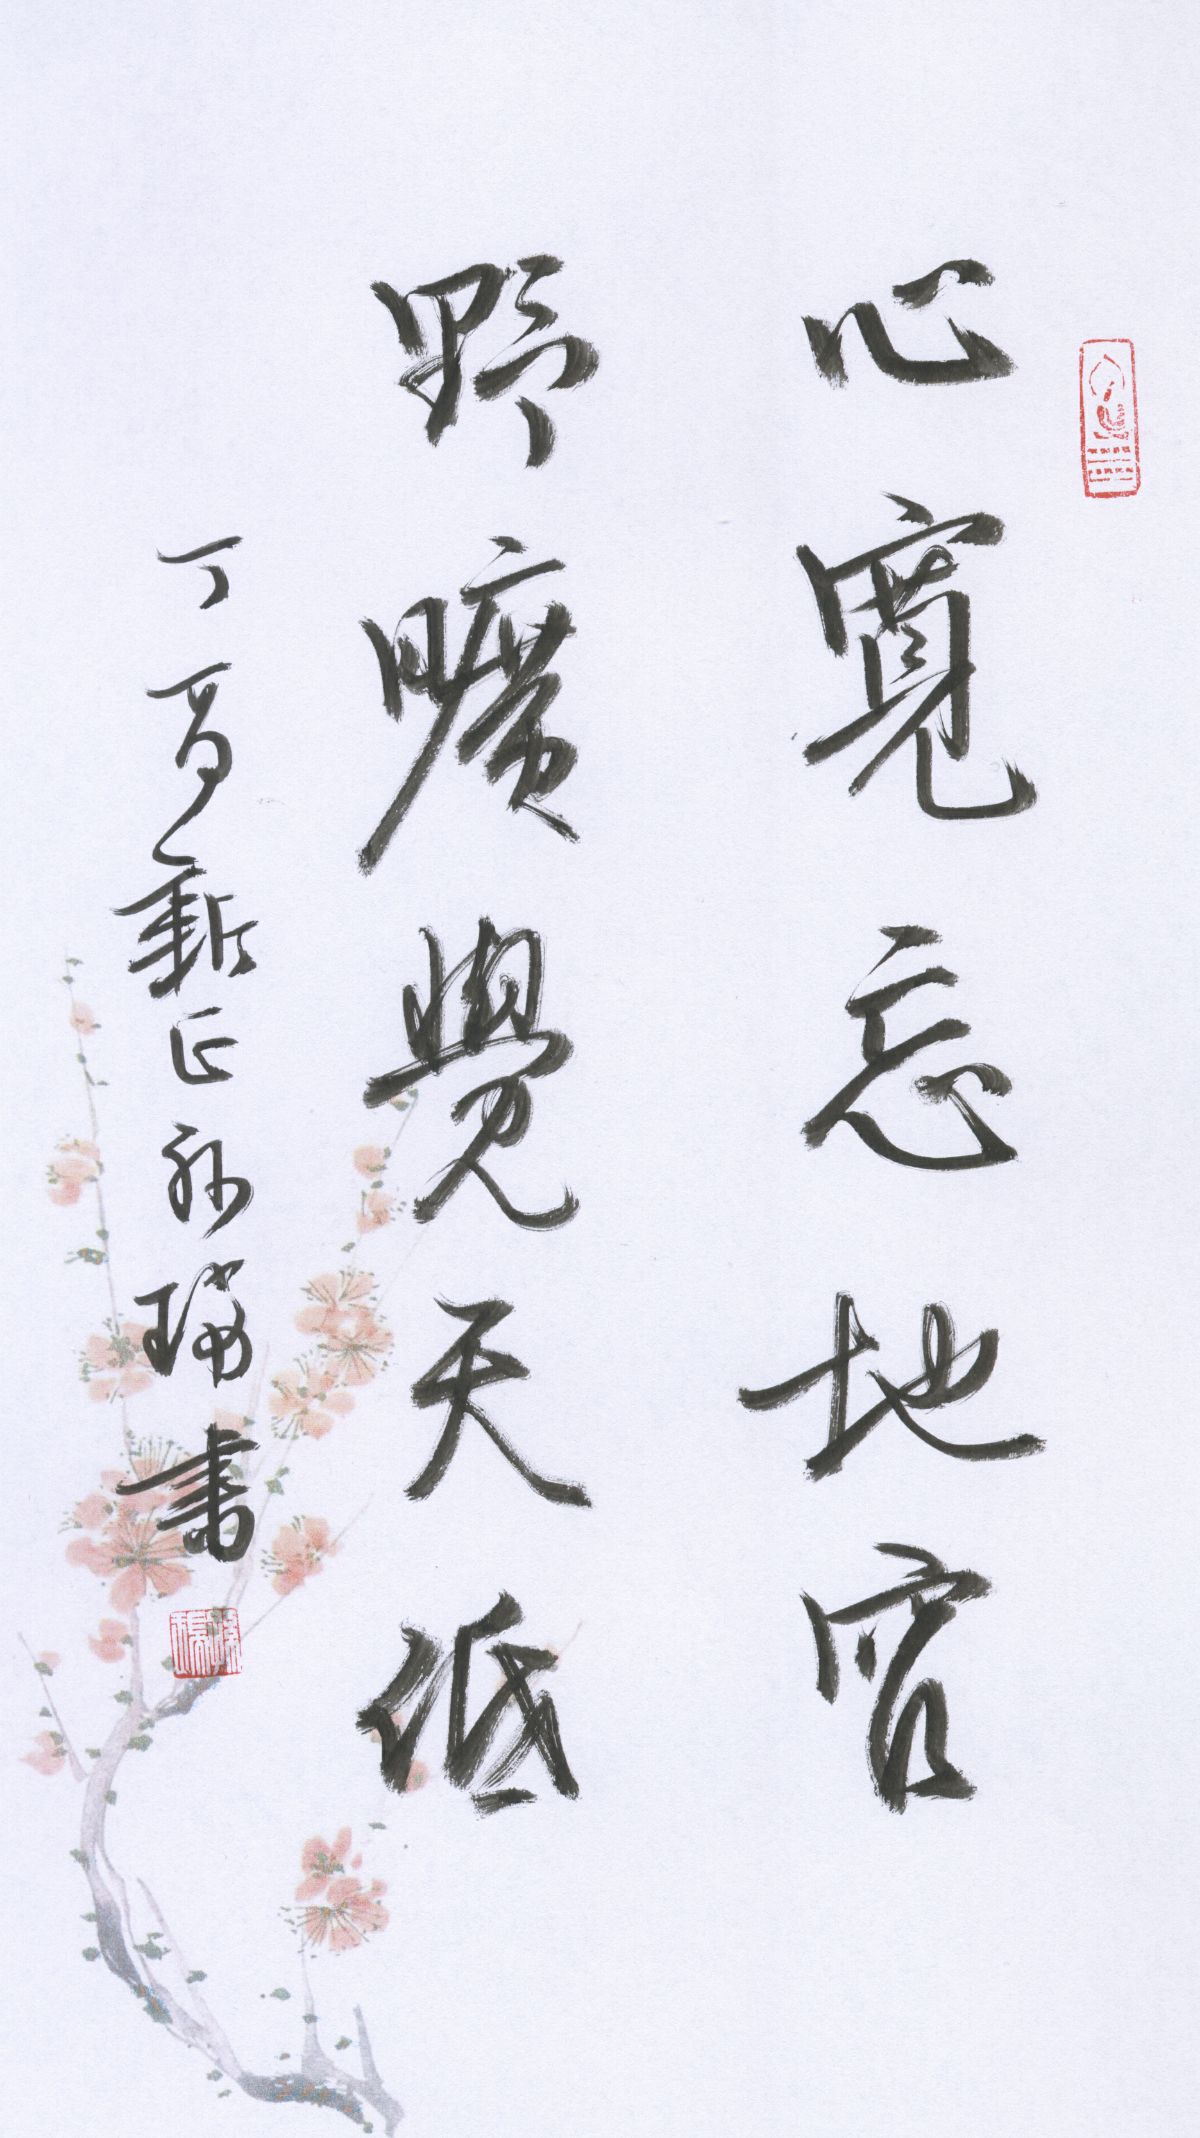 心寬忘地窄
野曠覺天低
丁酉新正瑞書